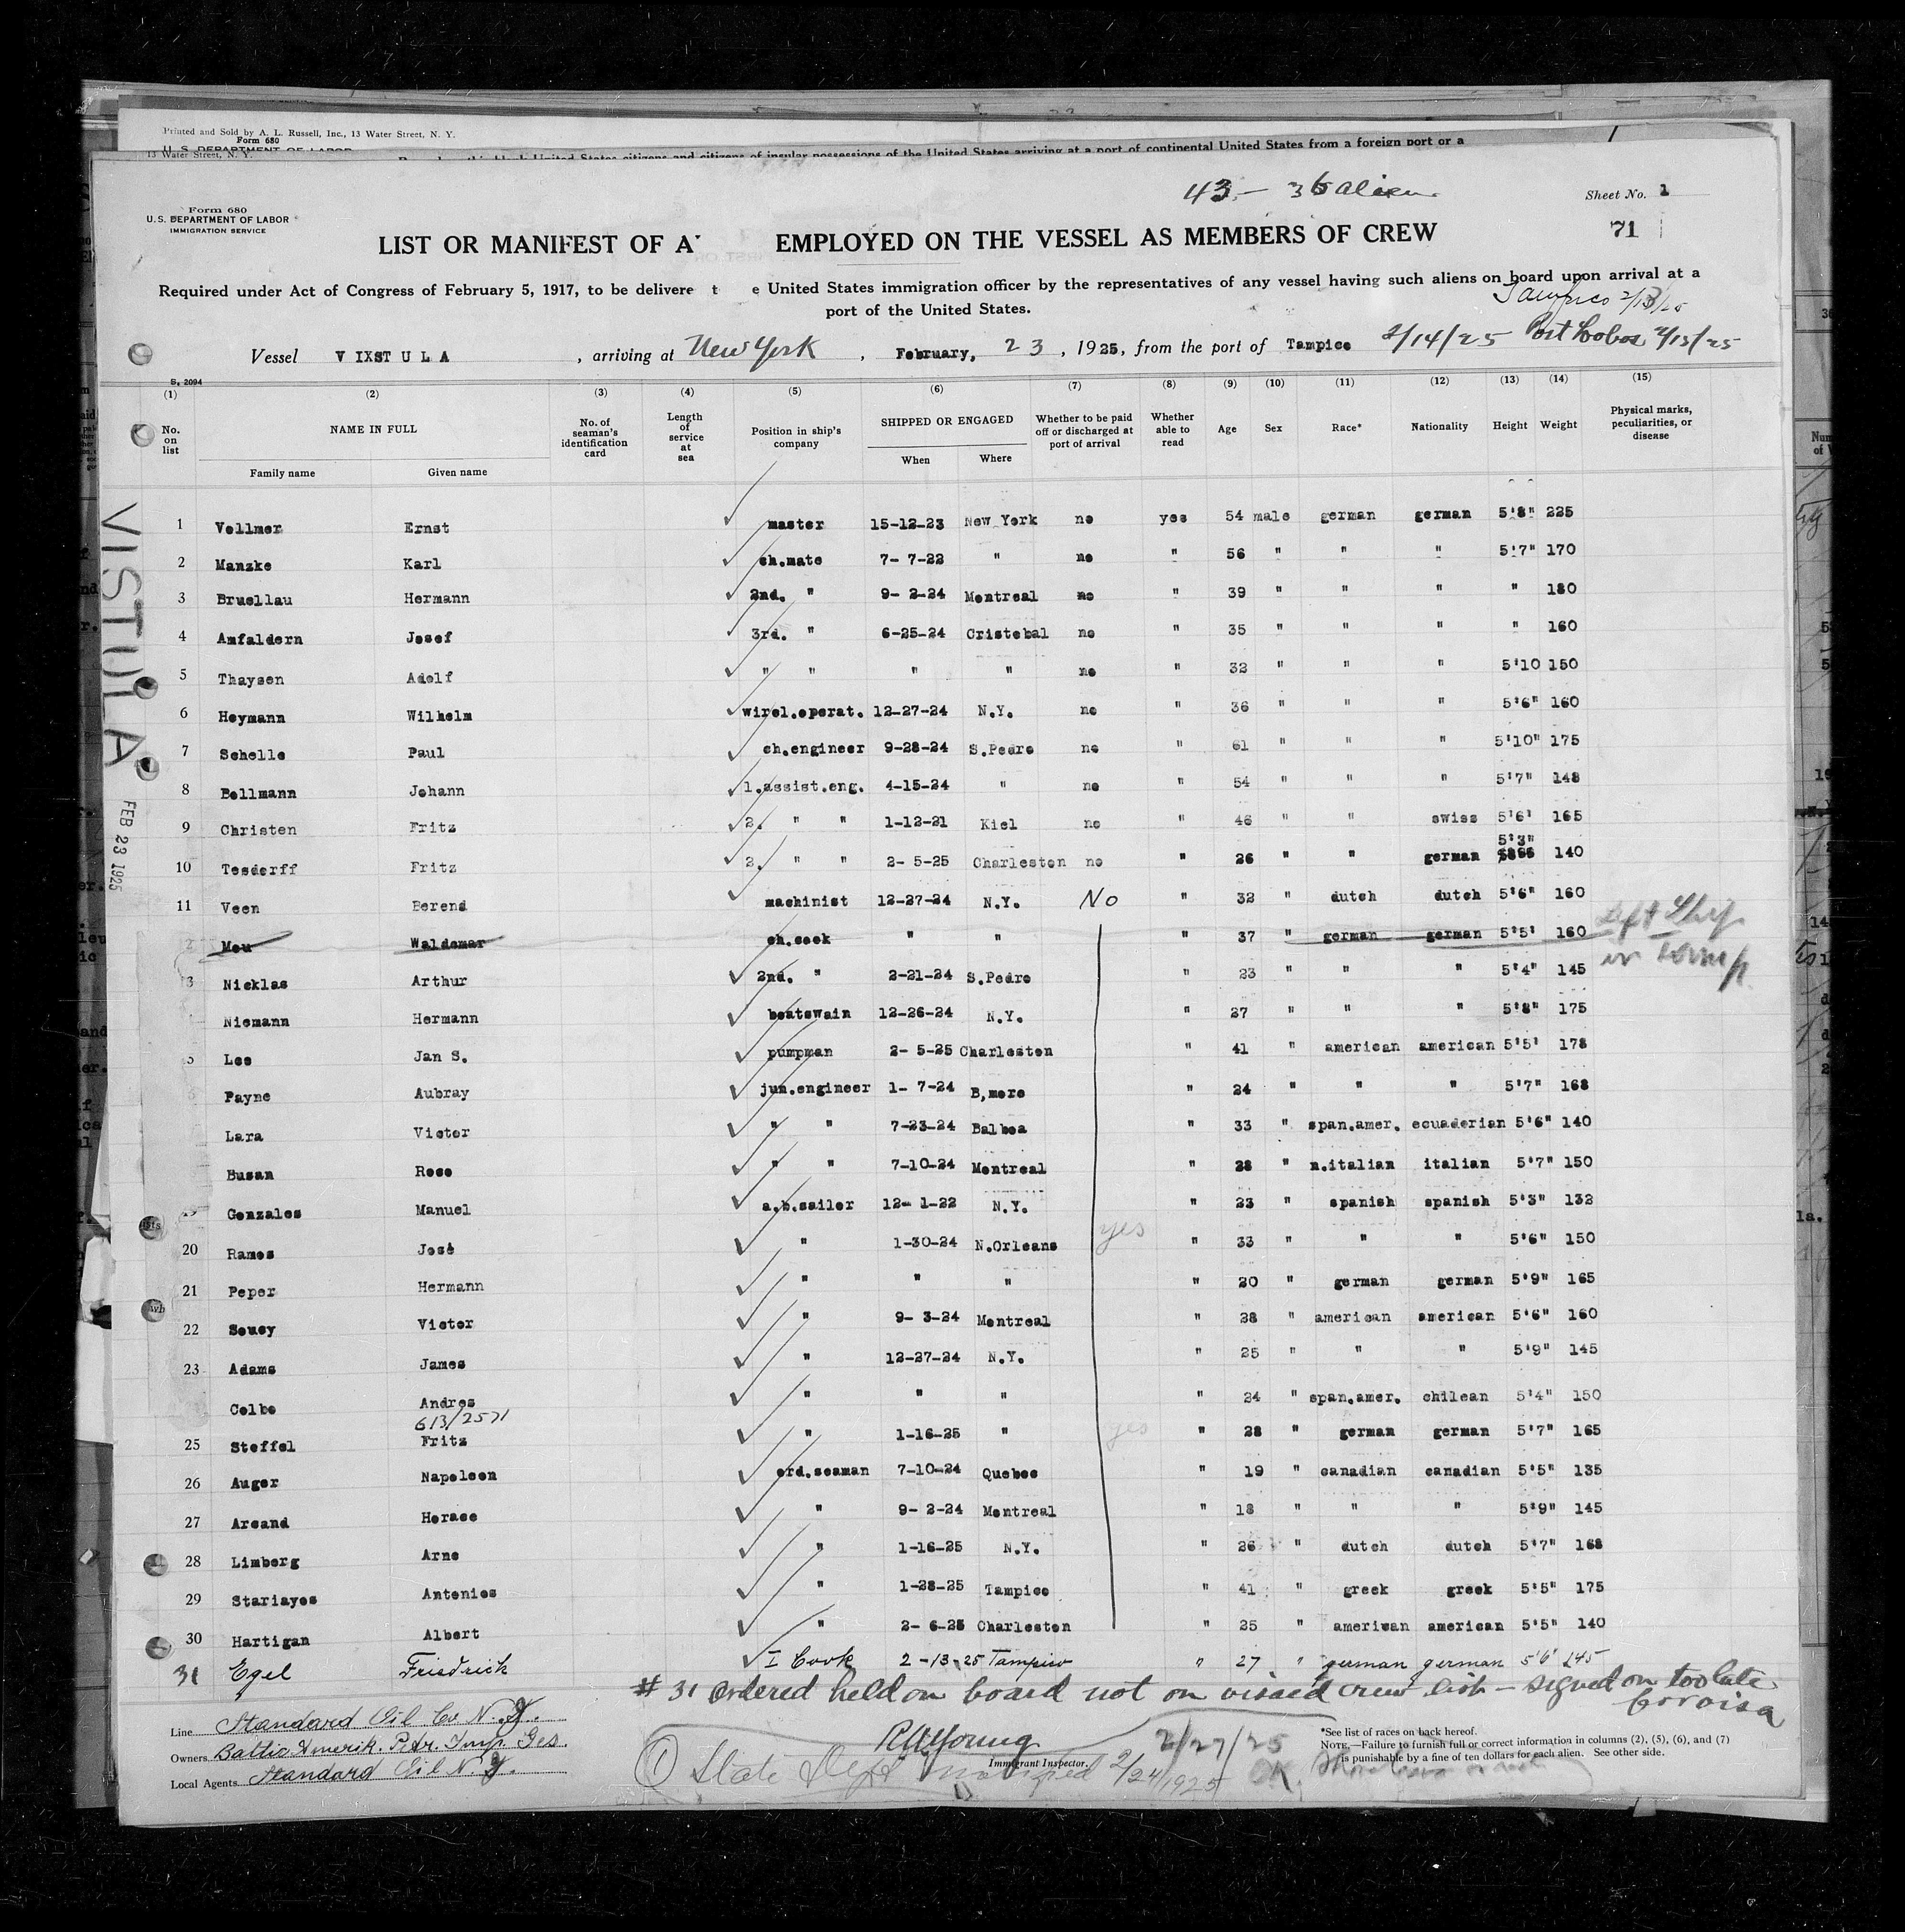 Printed and Sold by A. L. Russell, Inc., 13 Water Street, N. Y.
Form 680
13 Water Street, N. Y.
43 - 36 alien
Sheet No. 1
71
Form 680
U. S. DEPARTMENT OF LABOR
IMMIGRATION SERVICE
LIST OR MANIFEST OF A EMPLOYED ON THE VESSEL AS MEMBERS OF CREW
Required under Act of Congress of February 5, 1917, to be delivere t e United States immigration officer by the representatives of any vessel having such aliens on board upon arrival at a
port of the United States.
Tampico 2/13/25
Vessel VIXSTULA , arriving at New York , February, 23 , 1925, from the port of Tampico 2/14/25 Port Lobos 2/13/25
S. 2094
(1) (2) (3) (4) (5) (6) (7) (8) (9) (10) (11) (12) (13) (14) (15)
No. on list NAME IN FULL Family name Given name No. of seaman's identification card Length of service at sea Position in ship's company SHIPPED OR ENGAGED When Where Whether to be paid off or discharged at port of arrival Whether able to read Age Sex Race* Nationality Height Weight Physical marks, peculiarities, or disease
VISTULA
FEB 23 1925
1 Vollmer Ernst master 15-12-23 New York no yes 54 male german german 5'8" 225
2 Manzke Karl ch.mate 7- 7-22 " no " 56 " " " 5'7" 170
3 Bruellau Hermann 2nd. " 9- 2-24 Montreal no " 39 " " " " 180
4 Amfaldern Josef 3rd. " 6-25-24 Cristobal no " 35 " " " " 160
5 Thaysen Adolf " " " " no " 32 " " " 5'10 150
6 Heymann Wilhelm wirel.operat. 12-27-24 N.Y. no " 36 " " " 5'6" 160
7 Schelle Paul ch.engineer 9-28-24 S.Pedro no " 61 " " " 5'10" 175
8 Bollmann Johann 1.assist.eng. 4-15-24 " no " 54 " " " 5'7" 148
9 Christen Fritz 2. " " 1-12-21 Kiel no " 46 " " swiss 5'6' 165
10 Tesdorff Fritz 2. " " 2- 5-25 Charleston no " 26 " " german 5'3" 140
11 Veen Berend machinist 12-27-24 N.Y. No " 32 " dutch dutch 5'6" 160
2 Mou Waldemar ch.cook " " " 37 " german german 5'5' 160 Left Ship in
3 Nicklas Arthur 2nd. " 2-21-24 S.Pedro " 23 " " " 5'4" 145
Niemann Hermann boatswain 12-26-24 N.Y. " 27 " " " 5'8" 175
5 Lee Jan S. pumpman 2- 5-25 Charleston " 41 " american american 5'5' 178
Payne Aubray jun.engineer 1- 7-24 B,more " 24 " " " 5'7" 168
Lara Victor " " 7-23-24 Balboa " 33 " span.amer. ecuadorian 5'6" 140
Busan Rose " " 7-10-24 Montreal " 28 " n.italian italian 5'7" 150
19 Gonzales Manuel a.b.sailor 12- 1-22 N.Y. " 23 " spanish spanish 5'3" 132
20 Ramos José " 1-30-24 N.Orleans yes " 33 " " " 5'6" 150
21 Peper Hermann " " " " 20 " german german 5'9" 165
22 Soucy Victor " 9- 3-24 Montreal " 28 " american american 5'6" 160
23 Adams James " 12-27-24 N.Y. " 25 " " " 5'9" 145
Colbo Andres " " " " 24 " span.amer. chilean 5'4" 150
613/2571
25 Steffel Fritz " 1-16-25 " yes " 28 " german german 5'7" 165
26 Auger Napoleon ord.seaman 7-10-24 Quebec " 19 " canadian canadian 5'5" 135
27 Arcand Horace " 9- 2-24 Montreal " 18 " " " 5'9" 145
28 Limberg Arne " 1-16-25 N.Y. " 26 " dutch dutch 5'7" 168
29 Stariayos Antonios " 1-28-25 Tampico " 41 " greek greek 5'5" 175
30 Hartigan Albert " 2- 6-25 Charleston " 25 " ameriwan american 5'5" 140
31 Egel Friedrich I Cook 2-13-25 Tampico " 27 " german german 5'6' 145
# 31 Ordered held on board not on visaed crew list - signed on too late for visa
Line Standard Oil Co N.Y.
Owners Baltic Amerik. Petr. Imp. Ges.
Local Agents Standard Oil N.Y.
R A Young
Immigrant Inspector.
2/27/25
① State Dept notified 2/24/1925 OK
*See list of races on back hereof.
NOTE.—Failure to furnish full or correct information in columns (2), (5), (6), and (7)
is punishable by a fine of ten dollars for each alien. See other side.